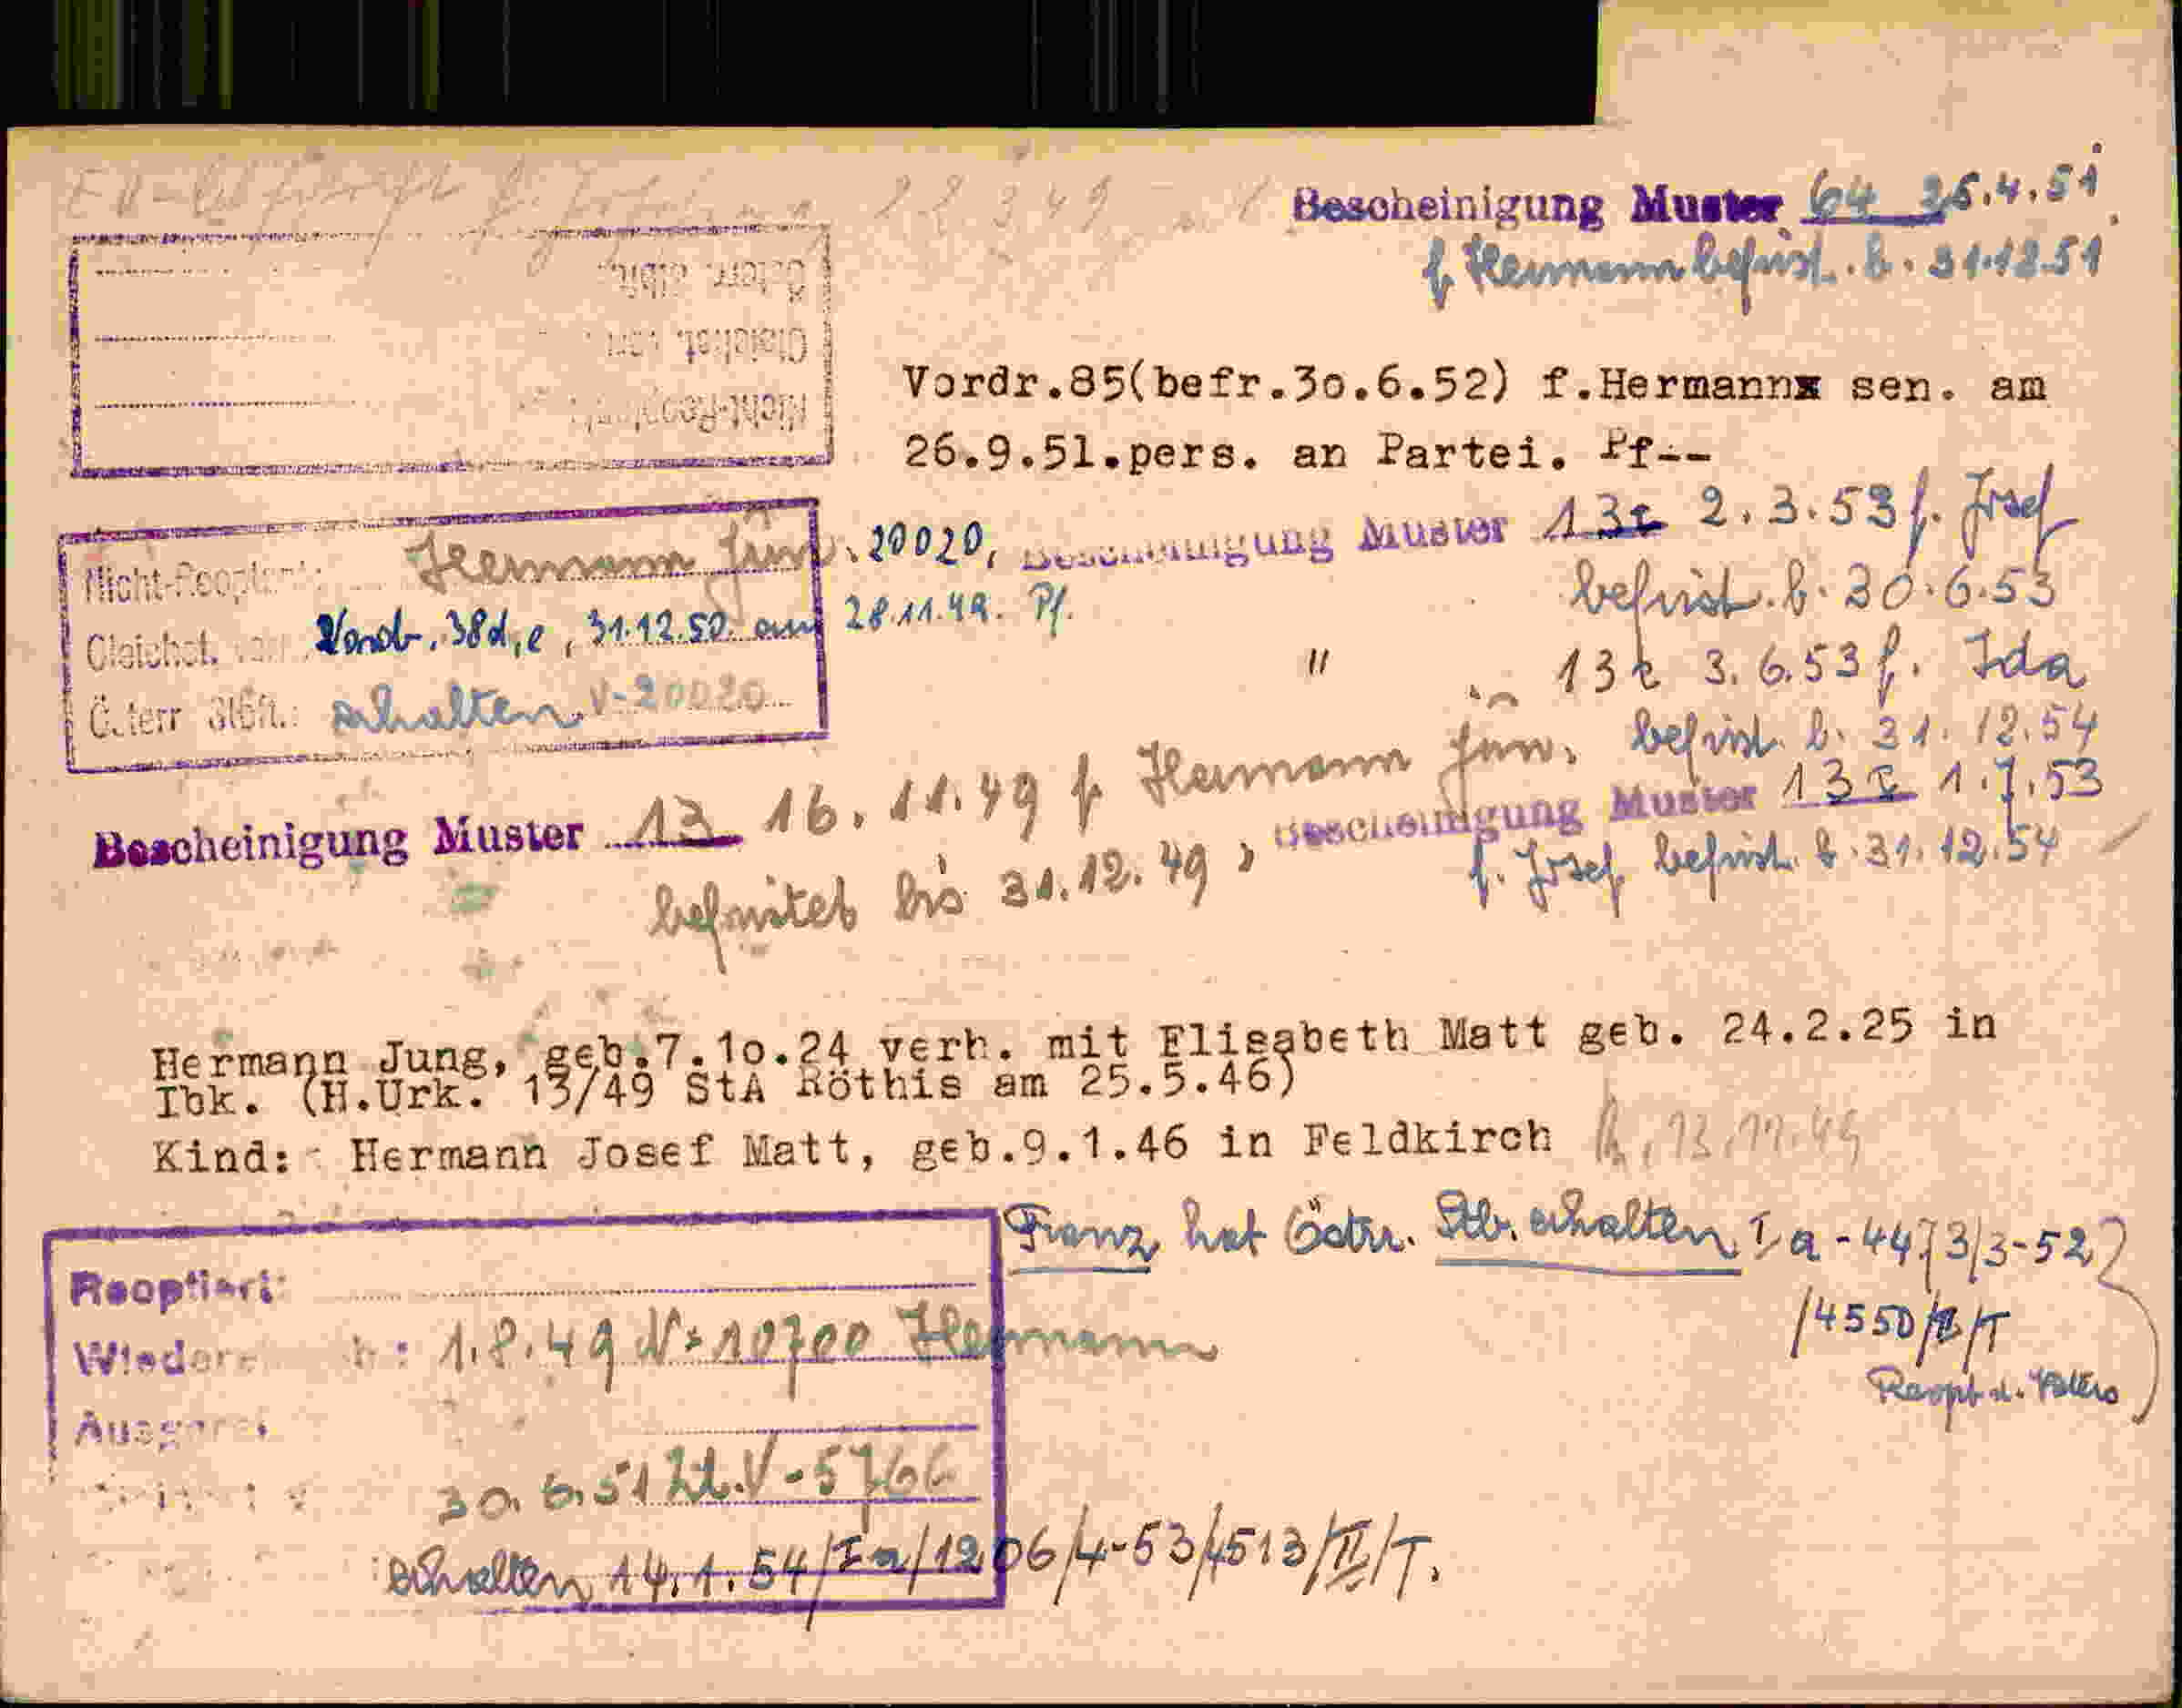 22349
Bescheinigung Muster 64 25.4.51
f. Hermann befrist. b. 31.12.51
Österr. Stbft.:
Gleichst. von:
Nicht-Reoptant:
Vordr.85(befr.3o.6.52) f.Hermannx sen. am
26.9.51.pers. an Partei. Pf--
Nicht-Reoptant: Hermann jun. 20020,
Gleichst. von Vordr. 38d,e, 31.12.50. am 28.11.49. Pf.
Österr Stbft.: erhalten V-20020
Bescheinigung Muster 13c 2.3.53 f. Josef
befrist. b. 30.6.53
" 13c 3.6.53 f. Ida
befrist. b. 31.12.54
Bescheinigung Muster 13c 1.7.53
f. Josef befrist. b. 31.12.54
Bescheinigung Muster 13 16.11.49 f Hermann jun.
befristet bis 31.12.49
Hermann Jung, geb.7.1o.24 verh. mit Elisabeth Matt geb. 24.2.25 in
Ibk. (H.Urk. 13/49 StA Röthis am 25.5.46)
Kind: Hermann Josef Matt, geb.9.1.46 in Feldkirch 13.11.49
Franz hat Östr. Stb. erhalten Ia-4473/3-52
/4550/II/T
Reopt. d. Vaters
Reoptiert:
1.8.49 V-10700 Hermann
30.6.51 Zl.V-5766
erhalten 14.1.54/Ia/1206/4-53/4513/II/T.